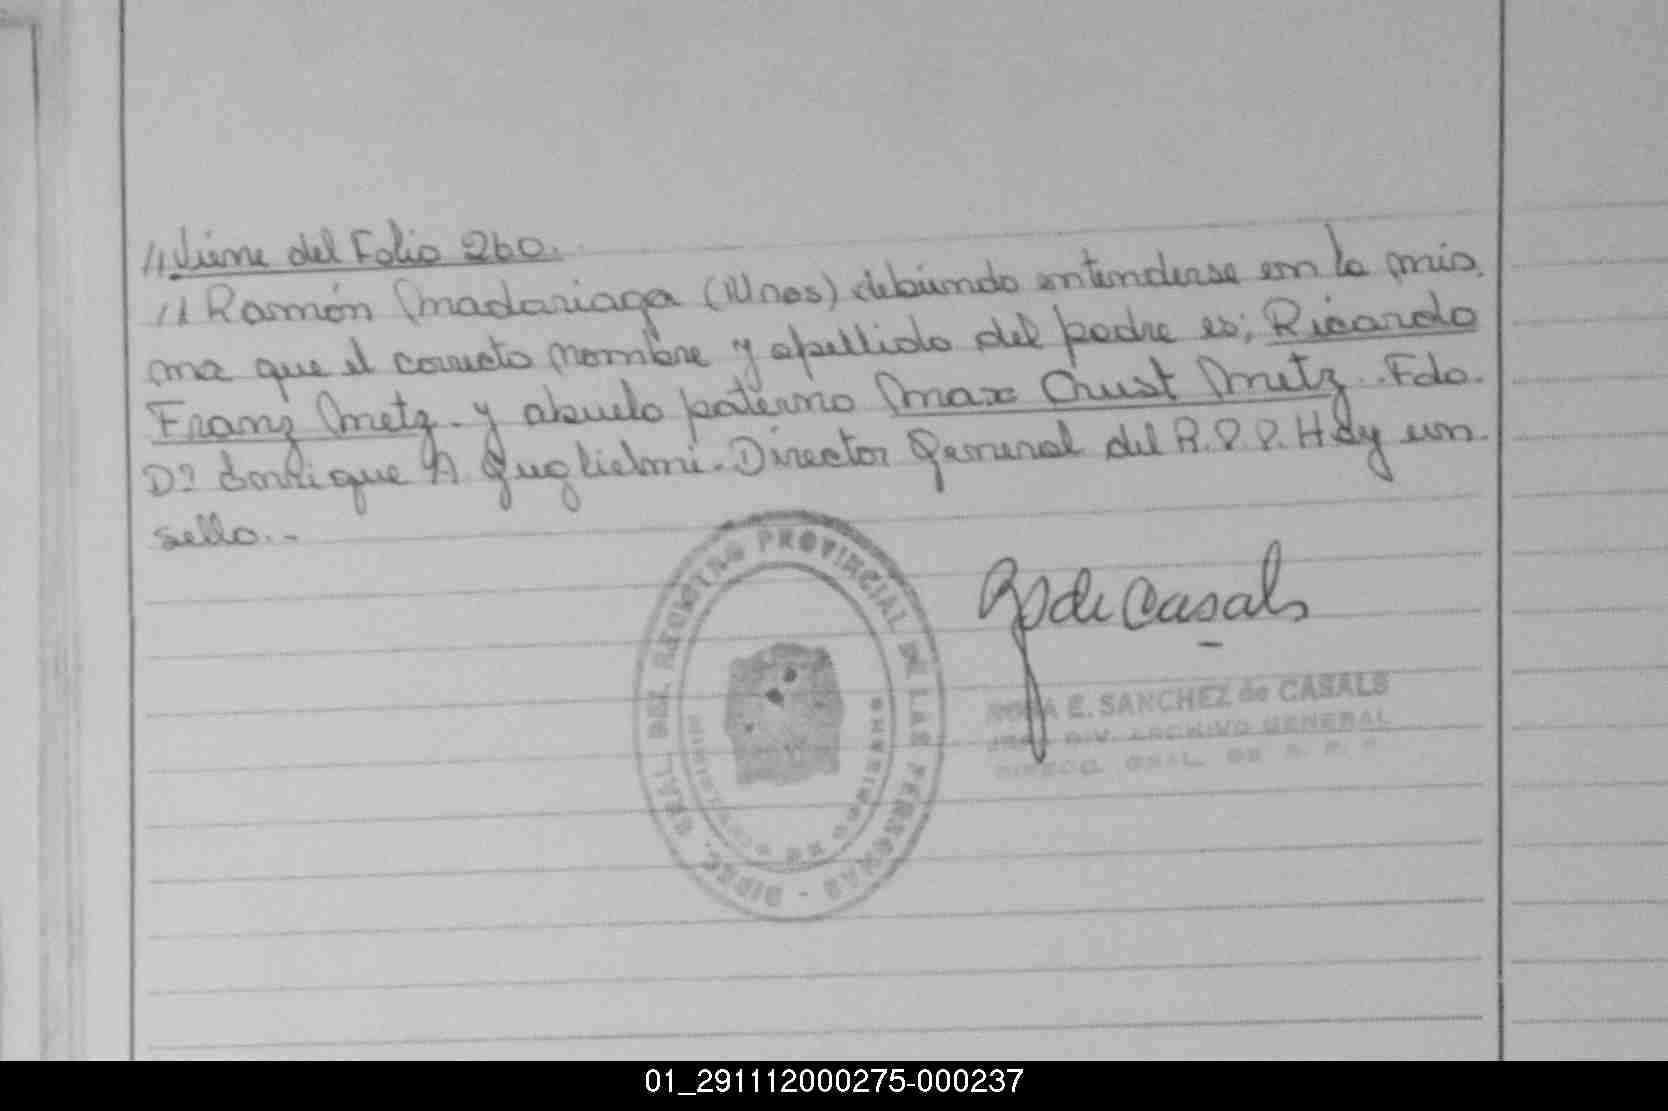 //Viene del Folio 260.
// Ramón Madariaga (Mnes) debiendo entenderse en la mis.
ma que el correcto nombre y apellido del padre es; Ricardo
Franz Metz. y abuelo paterno Max Chust Metz. Fdo.
Dº Enrique A. Guglielmi. Director General del R.P.P. Hay un
sello..-
DIREC. GRAL. DEL REGISTRO PROVINCIAL DE LAS PERSONAS -
R de Casals
ROSA E. SANCHEZ de CASALS
JEFA DIV. ARCHIVO GENERAL
DIRECC. GRAL. DE R. P. P.
01_291112000275-000237